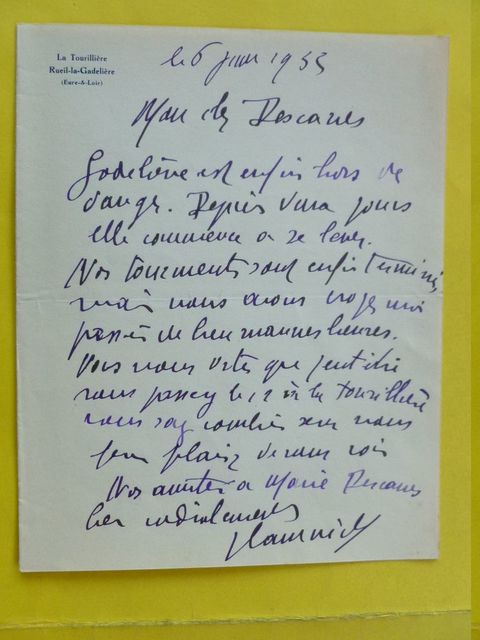 La Tourillière
Rueil-la-Gadelière
(Eure-&-Loir)
le 6 juin 1955
Mon cher Descaves
Godeliève est enfin hors de
danger. Depuis deux jours
elle commence à se lever.
Nos tourments sont enfin terminés
mais nous avons croyez moi
passés de bien mauvaises heures.
Vous nous dites que
vous passez le 12 à la Tourillière
vous savez combien nous
fera plaisir de vous voir
Nos amitiés à Marie Descaves
bien cordialement
Vlaminck